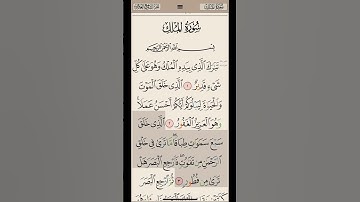 سُورَةُ المُلْكِ
بِسْمِ اللَّهِ الرَّحْمَٰنِ الرَّحِيمِ
تَبَٰرَكَ الَّذِي بِيَدِهِ الْمُلْكُ وَهُوَ عَلَىٰ كُلِّ
شَيْءٍ قَدِيرٌ ١ الَّذِي خَلَقَ الْمَوْتَ
وَالْحَيَوٰةَ لِيَبْلُوَكُمْ أَيُّكُمْ أَحْسَنُ عَمَلًا
وَهُوَ الْعَزِيزُ الْغَفُورُ ٢ الَّذِي خَلَقَ
سَبْعَ سَمَٰوَٰتٍ طِبَاقًا مَّا تَرَىٰ فِي خَلْقِ
الرَّحْمَٰنِ مِن تَفَٰوُتٍ فَارْجِعِ الْبَصَرَ هَلْ
تَرَىٰ مِن فُطُورٍ ٣ ثُمَّ ارْجِعِ الْبَصَرَ